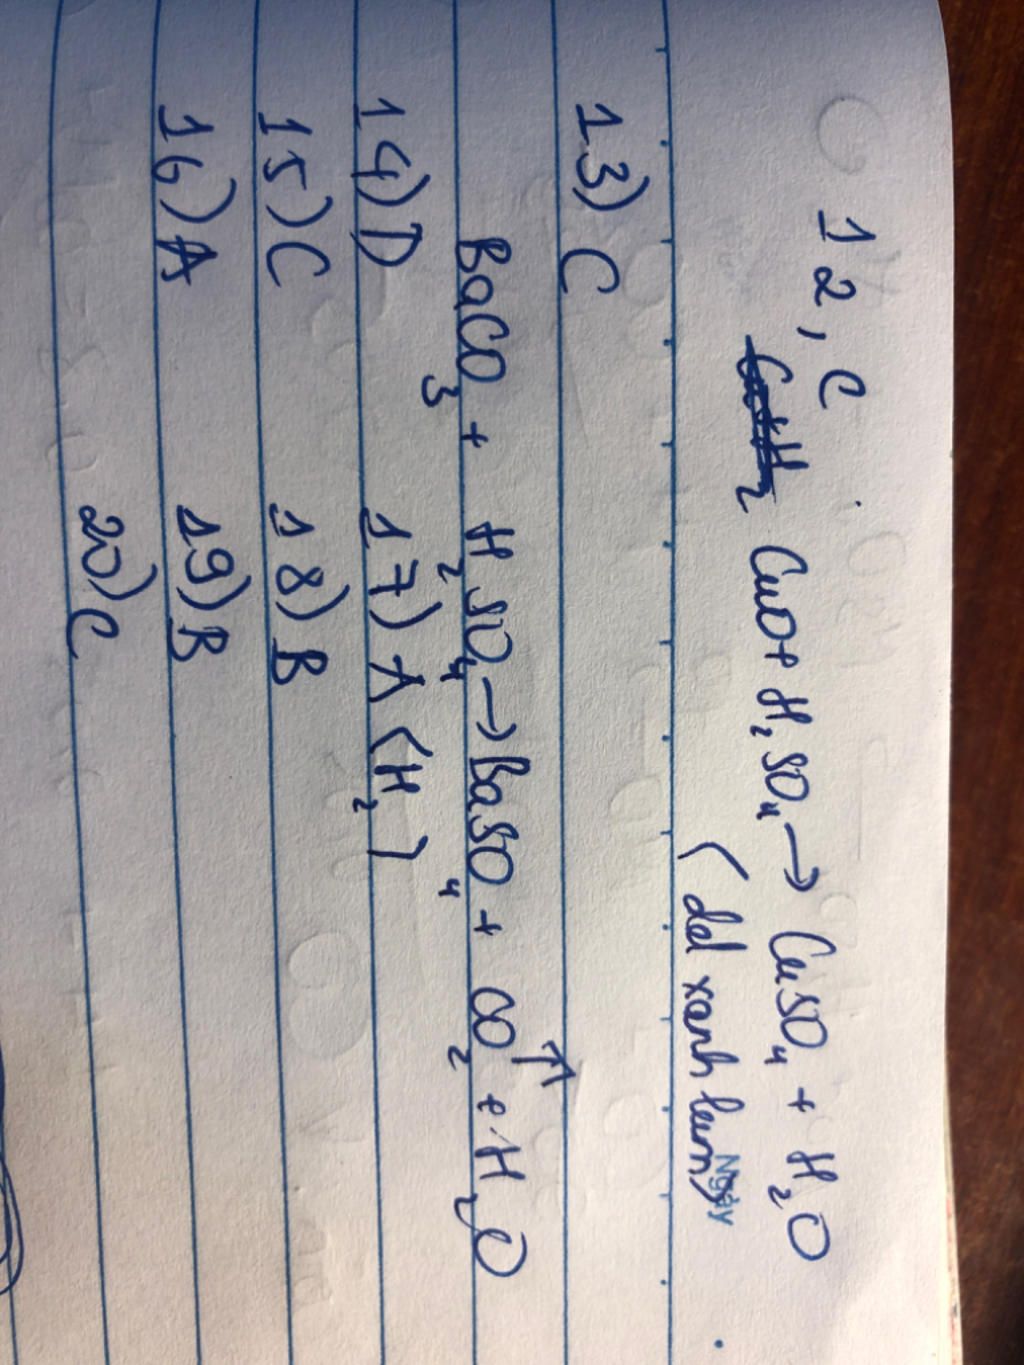 12, C
CuO + H₂SO₄ → CuSO₄ + H₂O
(dd xanh lam)
Ngày
13) C
BaCO₃ + H₂SO₄ → BaSO₄ + CO₂ ↑ + H₂O
14) D 17) A (H₂)
15) C 18) B
16) A 19) B
20) C